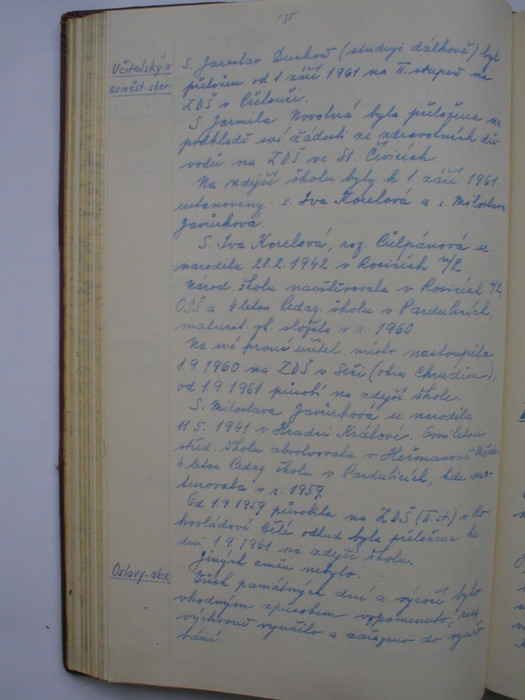 135
Učitelský a
zaměst. sbor:
S. Jaroslav (studuje dálkově) byl
přeložen od 1. září 1961 na II. stupeň na
ZDŠ v
S. Jarmila Novotná byla přeložena na
podkladě své žádosti ze zdravotních dů-
vodů na ZDŠ ve St. Čivicích.
Na zdejší školu byly k 1. září 1961
ustanoveny s. Iva Korelová a s. Miloslava
Javůrková.
S. Iva Korelová, roz. Culpánová se
narodila 28.2. 1942 v Rosicích n/L.
Národ. školu navštěvovala v Rosicích n/L,
OSŠ a 4 letou Pedag. školu v Pardubicích,
maturit. zk. složila v r. 1960.
Na své první učitel. místo nastoupila
1.9.1960 na ZDŠ v Seči (okres Chrudim),
od 1.9.1961 působí na zdejší škole.
S. Miloslava Javůrková se narodila
11.5. 1941 v Hradci Králové. Osmiletou
střed. školu absolvovala v Heřmanově Městci
4 letou Pedag. školu v Pardubicích, kde ma-
turovala v r. 1959.
Od 1.9.1959 působila na ZDŠ (II. st.) v Ro-
kovládově Bělé odtud byla přeložena ke
dni 1.9.1961 na zdejší školu.
Jiných změn nebylo.
Oslavy, akce:
Všech památných dní a výročí bylo
vhodným způsobem vzpomenuto,
výchovně využito a zařazeno do vyučo-
vání.